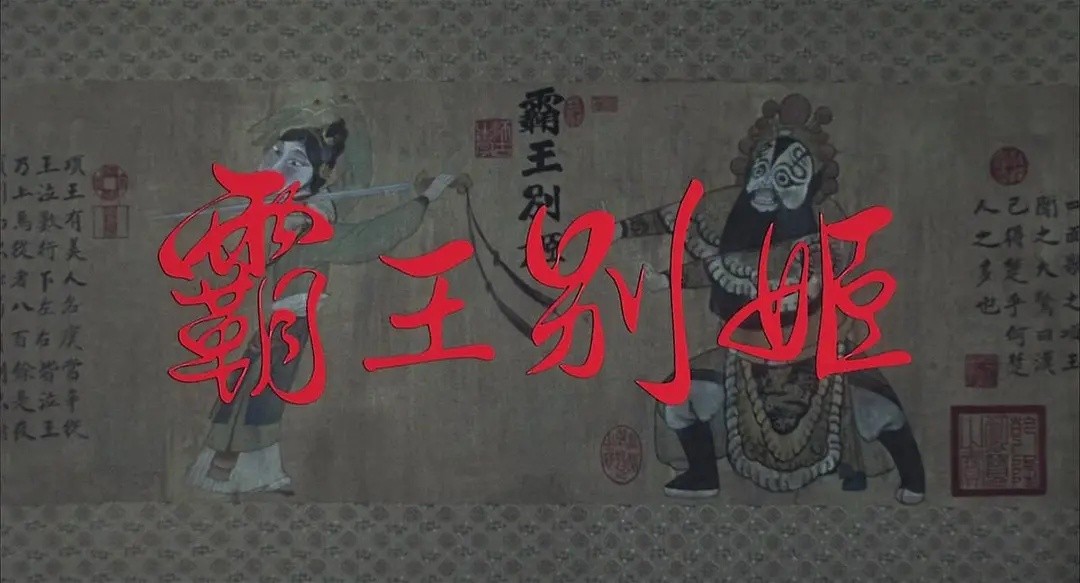 霸王别姬
霸王別姬
聞之大驚曰漢
已得楚乎何楚
人之多也
項王有美人名虞常幸從
王泣數行下左右皆泣王
乃上馬從者八百餘是夜